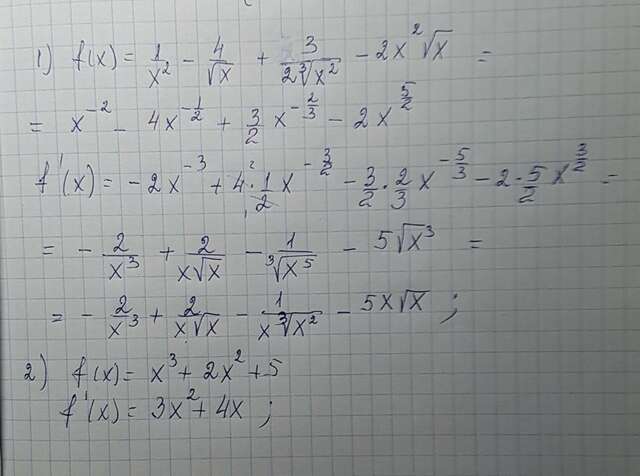 1) f(x) = 1/x² - 4/√x + 3/(2∛x²) - 2x²√x =
= x⁻² - 4x^(-1/2) + 3/2 x^(-2/3) - 2x^(5/2)
f'(x) = -2x⁻³ + 4·1/2 x^(-3/2) - 3/2 · 2/3 x^(-5/3) - 2·5/2 x^(3/2) =
= - 2/x³ + 2/(x√x) - 1/∛x⁵ - 5√x³ =
= - 2/x³ + 2/(x√x) - 1/(x∛x²) - 5x√x ;
2) f(x) = x³ + 2x² + 5
f'(x) = 3x² + 4x ;